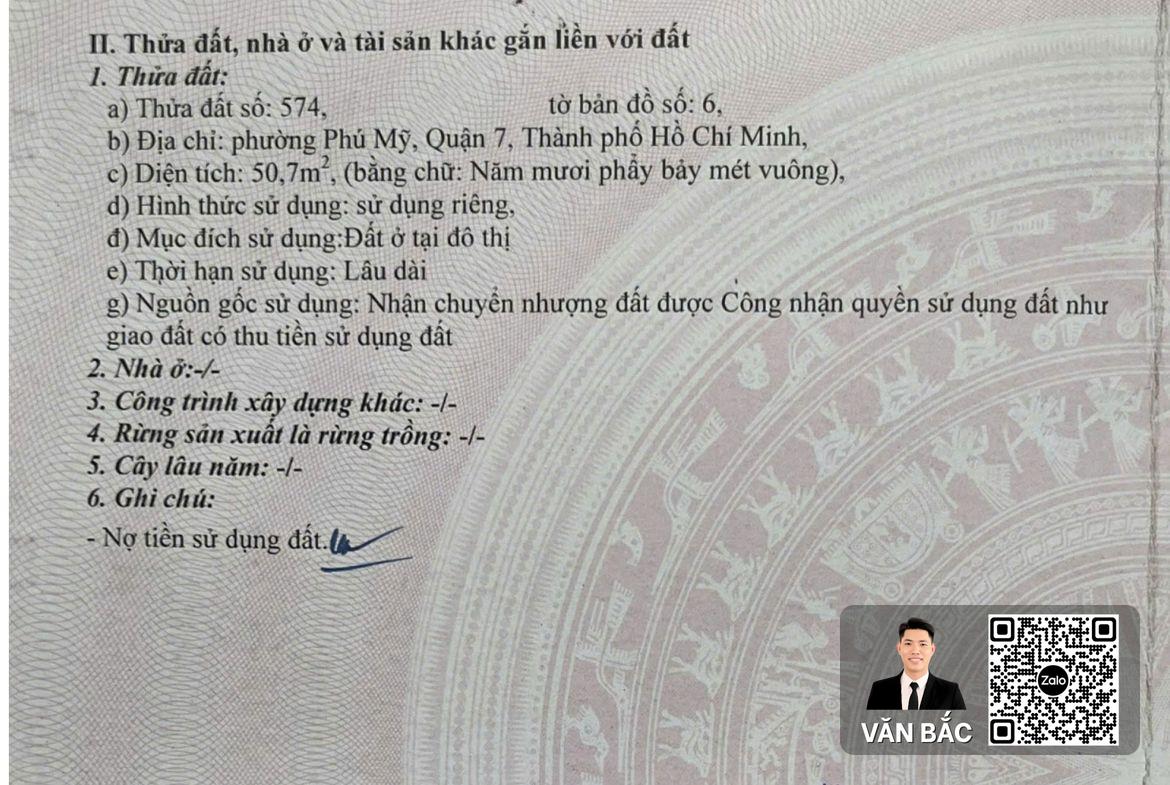 II. Thửa đất, nhà ở và tài sản khác gắn liền với đất
1. Thửa đất:
a) Thửa đất số: 574, tờ bản đồ số: 6,
b) Địa chỉ: phường Phú Mỹ, Quận 7, Thành phố Hồ Chí Minh,
c) Diện tích: 50,7m², (bằng chữ: Năm mươi phẩy bảy mét vuông),
d) Hình thức sử dụng: sử dụng riêng,
đ) Mục đích sử dụng:Đất ở tại đô thị
e) Thời hạn sử dụng: Lâu dài
g) Nguồn gốc sử dụng: Nhận chuyển nhượng đất được Công nhận quyền sử dụng đất như
giao đất có thu tiền sử dụng đất
2. Nhà ở:-/-
3. Công trình xây dựng khác: -/-
4. Rừng sản xuất là rừng trồng: -/-
5. Cây lâu năm: -/-
6. Ghi chú:
- Nợ tiền sử dụng đất.
Zalo
VĂN BẮC